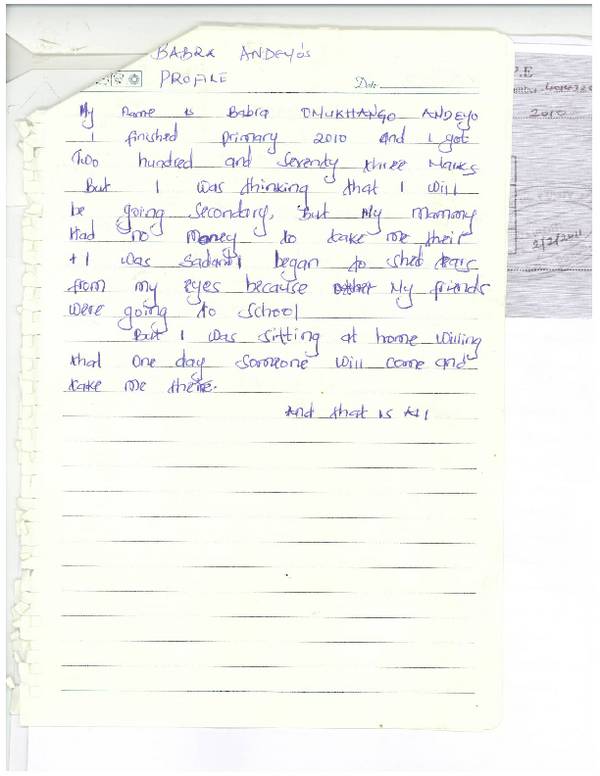 BABRA ANDEYO'S
PROFILE
Date
My name is Babra ONUKHANGO ANDEYO
I finished primary 2010 and I got
Two hundred and seventy three Marks
But I was thinking that I will
be going secondary, But My mammy
Had no money to take me their
I was sad and I began to shed tears
from my eyes because My friends
were going to school
But I was sitting at home willing
that one day someone will come and
take me there.
And that is All
P.E
2010
2/2/2011